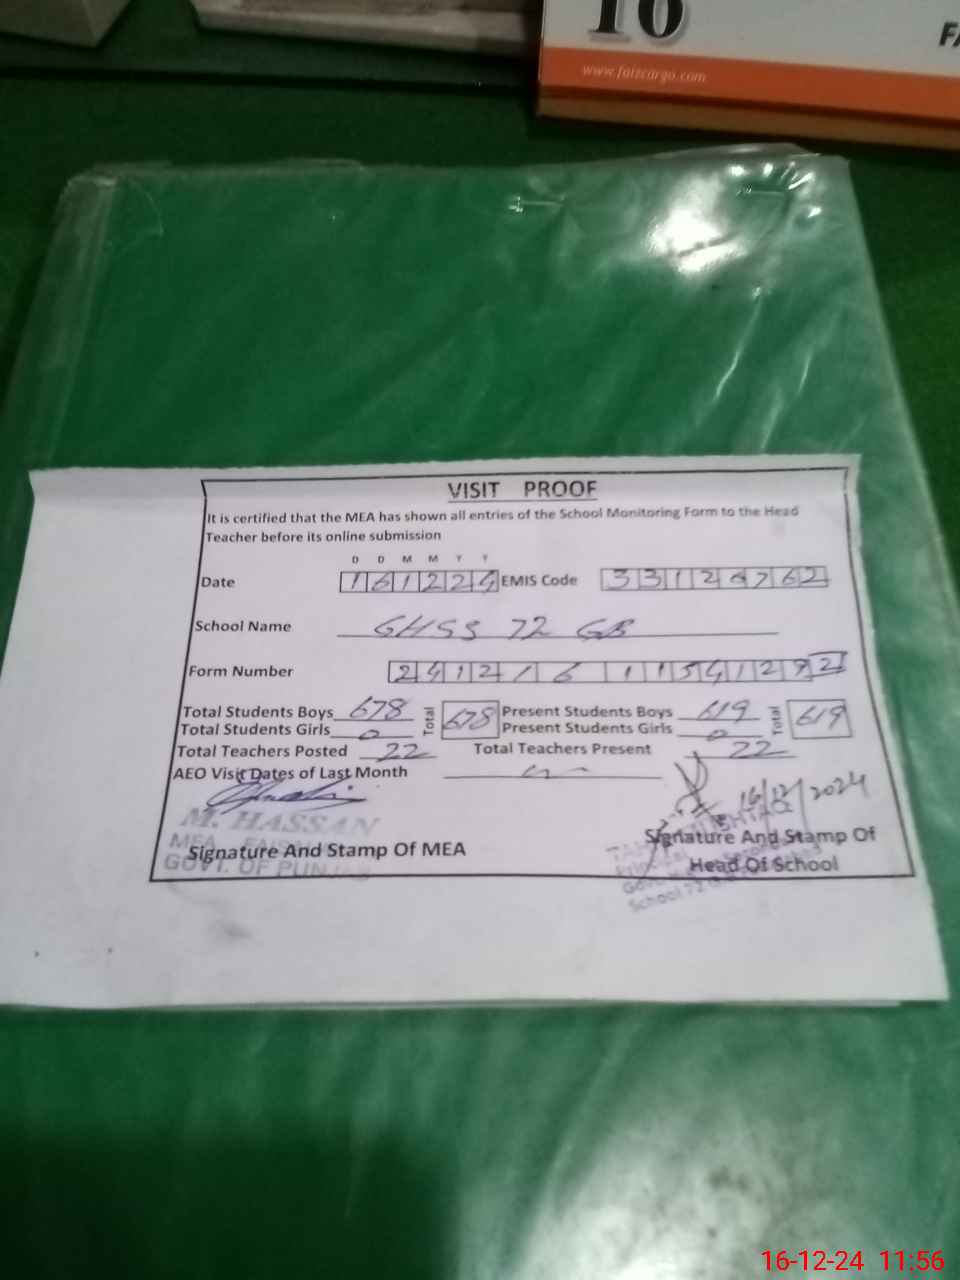 10
FA
www.faizcargo.com
VISIT PROOF
It is certified that the MEA has shown all entries of the School Monitoring Form to the Head
Teacher before its online submission
D D M M Y Y
Date 161224 EMIS Code 33126762
School Name GHSS 72 GB
Form Number
Total Students Boys 678 Total 678 Present Students Boys 619 Total 619
Total Students Girls 0 Present Students Girls 0
Total Teachers Posted 22 Total Teachers Present 22
AEO Visit Dates of Last Month
16/12/2024
M. HASSAN
MEA
Signature And Stamp Of MEA
GOVT. OF PUNJAB
Signature And Stamp Of
Head Of School
Principal
School 72
16-12-24 11:56